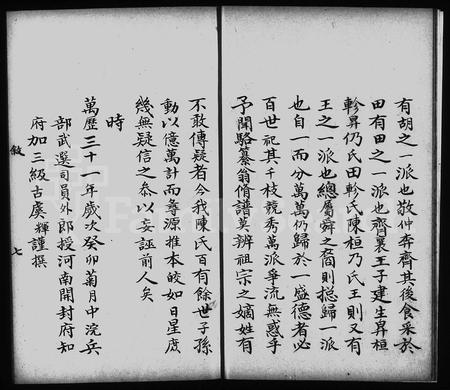 有胡之一派也敬仲奔齊其後食采於
田有田之一派也齊襄王子建生昇桓
軫昇仍氏田軫氏陳桓乃氏王則又有
王之一派也總屬舜之裔則摠歸一派
也自一而分萬萬仍歸於一盛德者必
百世祀其千枝競秀萬派爭流無惑乎
予聞駱纂翁脩譜莫辨祖宗之嫡姓有
不敢傳疑者今我陳氏百有餘世子孫
動以億萬計而尋源推本皎如日星庶
幾無疑信之叅以妄誣前人矣
時
萬歷三十一年歲次癸卯菊月中浣兵
部武選司員外郎授河南開封府知
府加三級古虞輝謹撰
敘
七